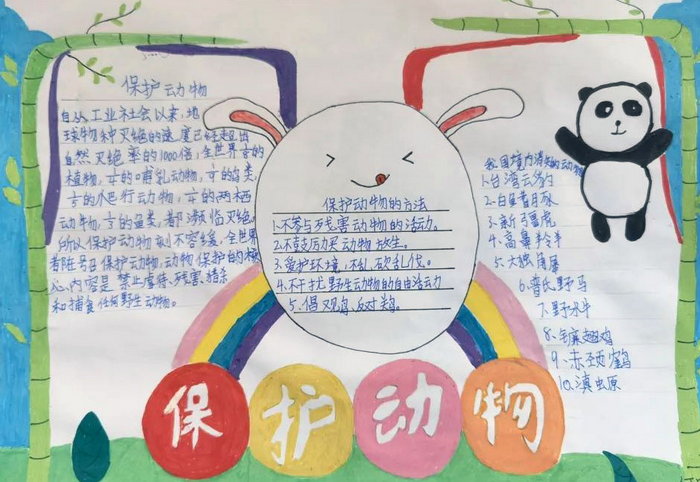 保护动物
自从工业社会以来,地
球物种灭绝的速度已经超出
自然灭绝率的1000倍,全世界言的
植物,言的哺乳动物,言的鸟类,
言的爬行动物,言的两栖
动物,言的鱼类,都濒临灭绝。
所以保护动物刻不容缓,全世界
都在号召保护动物,动物保护的核
心内容是禁止虐待、残害、猎杀
和捕食任何野生动物。
保护动物的方法
1.不参与残害动物的活动。
2.不鼓历买动物放生。
3.爱护环境,不乱砍乱伐。
4.不干扰野生动物的自由活动
5.倡观鸟,反对关鸟。
我国境内消失的动物
1.台湾云豹
2.白臀叶猴
3.新疆虎
4.高鼻羚羊
5.大独角犀
6.普氏野马
7.野水牛
8.镰翅鸡
9.赤颈鹤
10.滇
保护动物